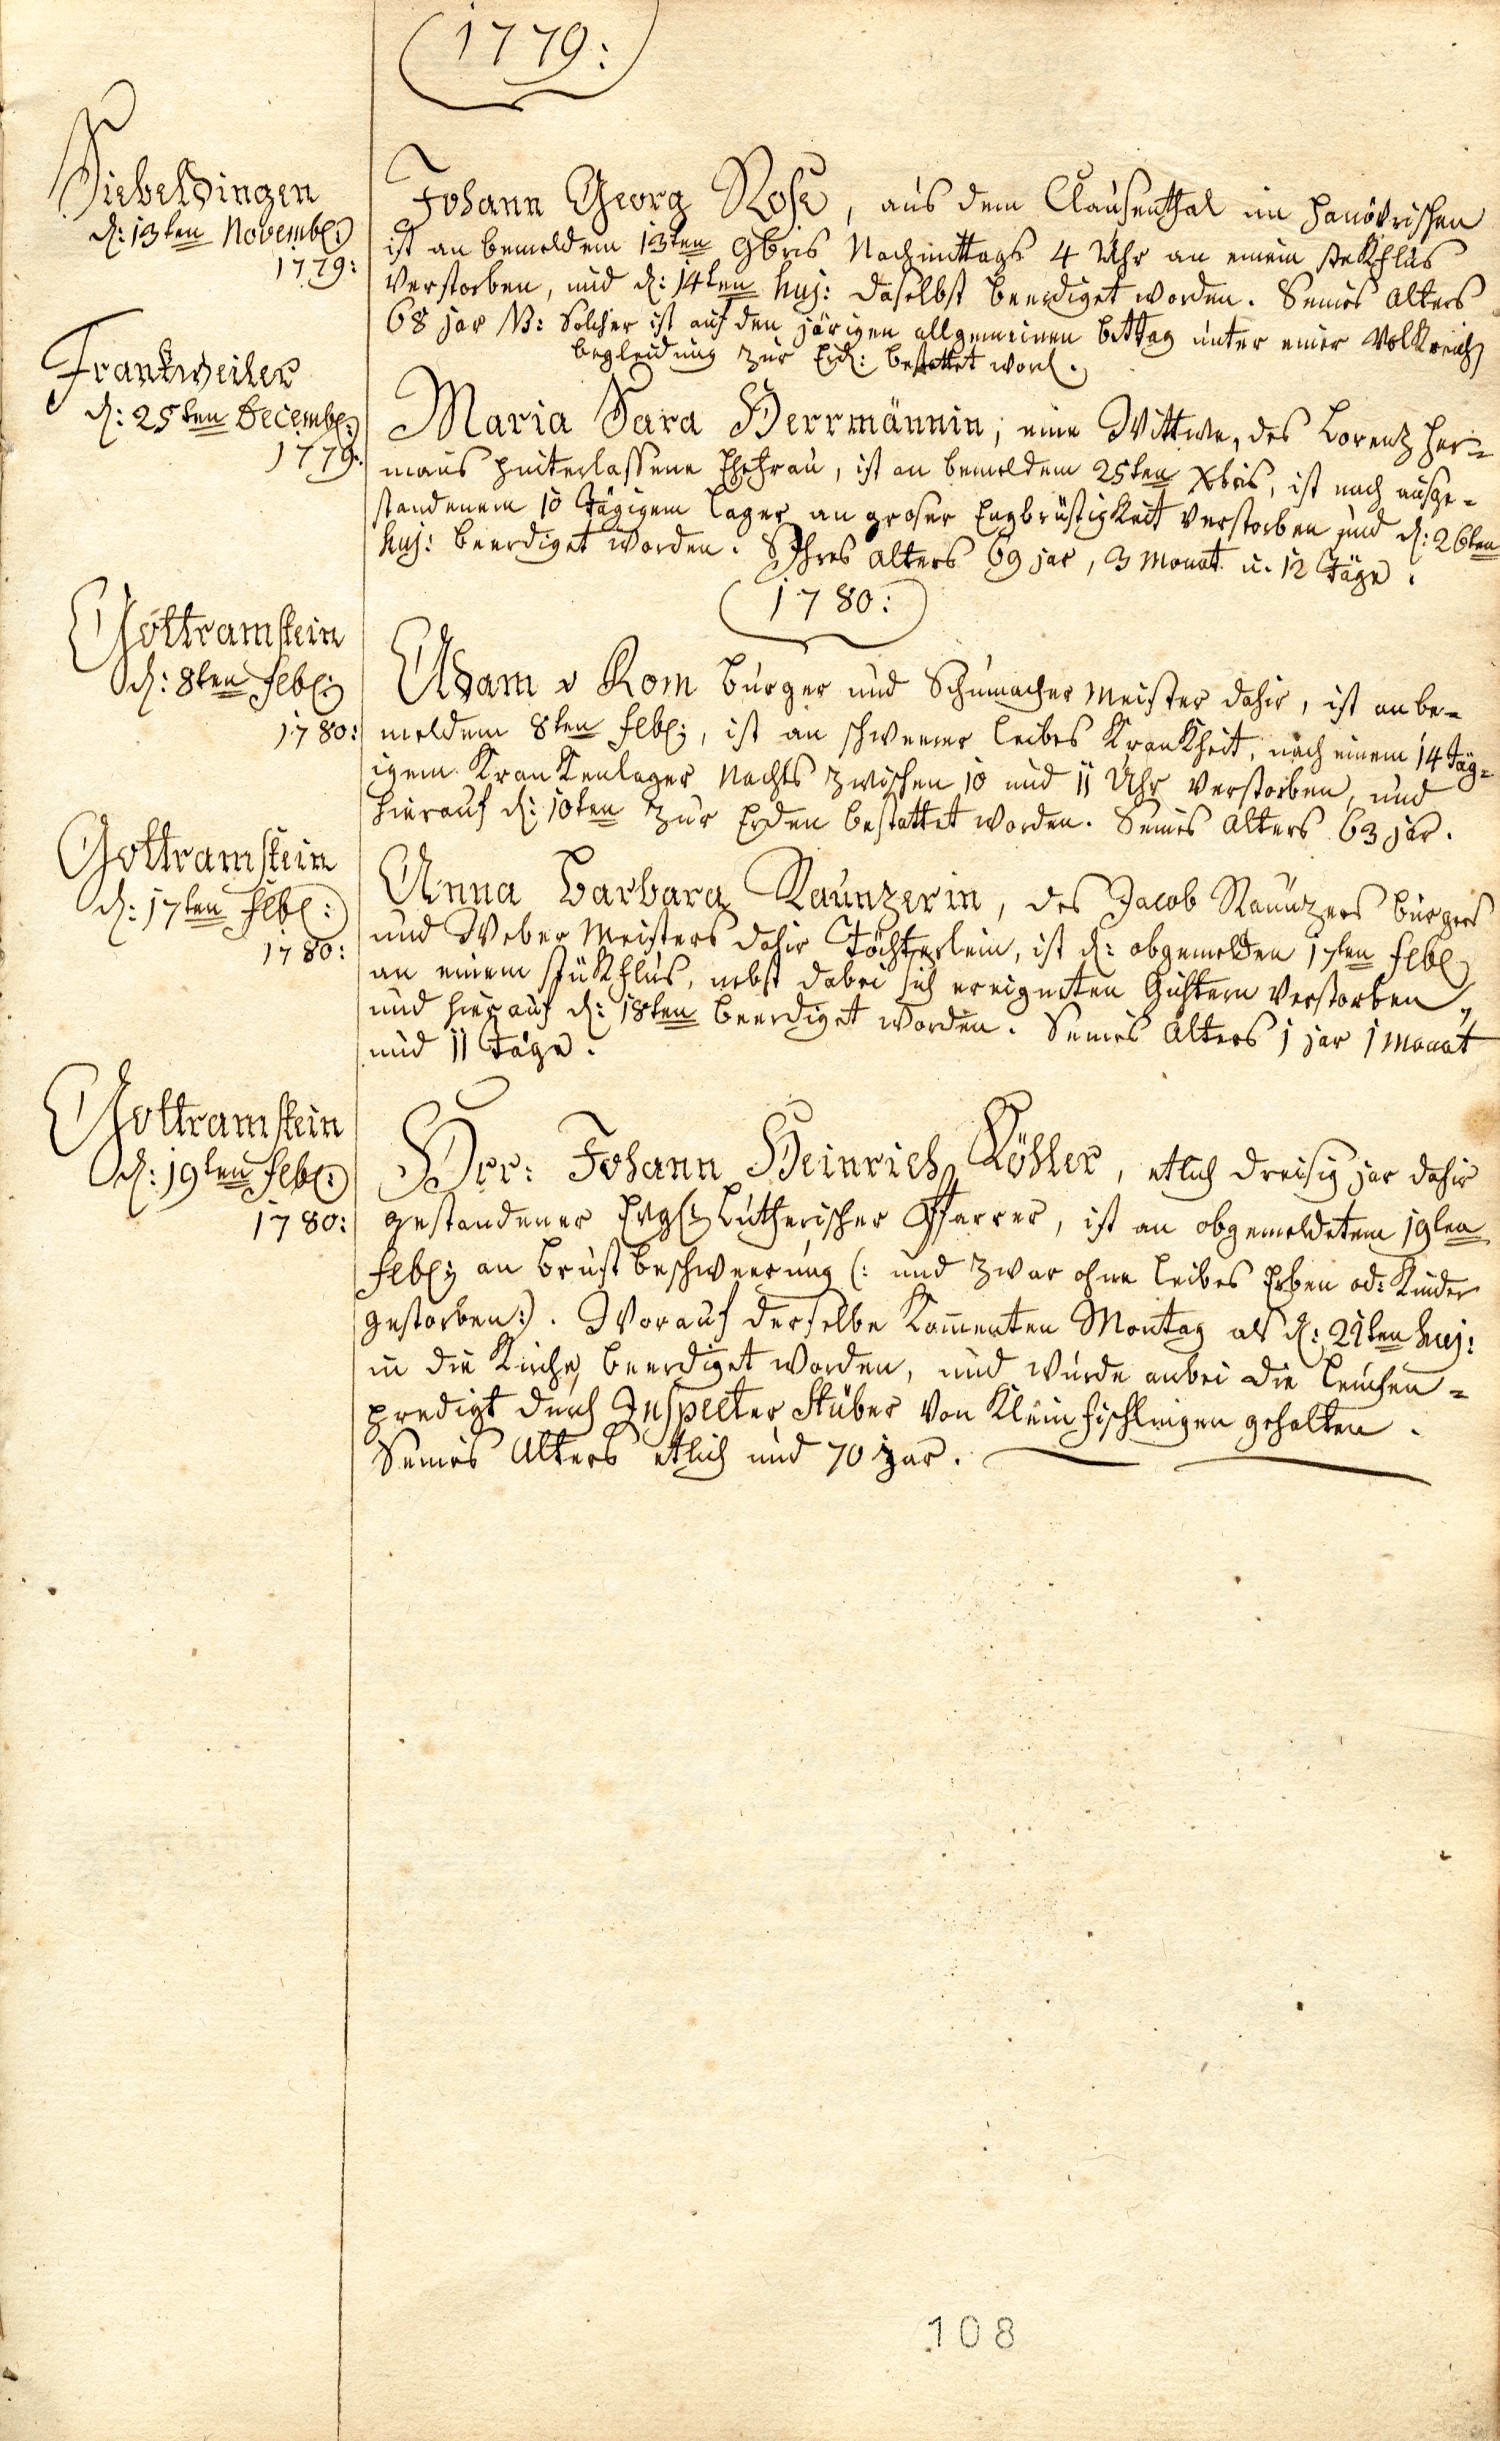 1779:
Siebeldingen
d: 13ten Novemb:
1779:
Johann Georg Rose, aus dem Clausenthal im Hanövrischen
ist an bemeldem 13ten 9bris Nachmittags 4 Uhr an einem stekflus
verstorben, und d: 14ten huj: daselbst beerdiget worden. Seines Alters
68 jar NB: Solcher ist auf den järigen allgemeinen bettag unter einer Volkreich
begleidung zur Erd: bestattet word.
Frankweiler
d: 25ten Decemb:
1779:
Maria Sara Herrmännin, eine Wittwe, des Lorentz Her=
mans hinterlassene Ehefrau, ist an bemeldem 25ten Xbris, ist nach ausge=
standenem 10 Tägigem Lager an groser Engbrüstigkeit verstorben und d: 26ten
huj: beerdiget worden. Ihres Alters 69 jar, 3 Monat u. 12 Täge.
1780:
Gottramstein
d: 8ten Feb:
1780:
Adam v Rom Burger und Schumacher Meister dahir, ist an be=
meldem 8ten Feb:, ist an schweerer Leibes Krankheit, nach einem 14 Täg=
igem Krankenlager Nachts zwischen 10 und 11 Uhr verstorben, und
hierauf d: 10ten zur Erden bestattet worden. Seines Alters 63 jar.
Gottramstein
d: 17ten Feb:
1780:
Anna Barbara Raunzerin, des Jacob Raunzers burgers
und Weber Meisters dahir Töchterlein, ist d: obgemelden 17ten Feb:
an einem stükflus, nebst dabei sich ereigneten Gichtern verstorben,
und hierauf d: 18ten beerdiget worden. Seines Alters 1 jar 1 Monat
und 11 Täge.
Gottramstein
d: 19ten Feb:
1780:
Herr: Johann Heinrich Köhler, etlich dreisig jar dahir
gestandener Evgl: Lutherischer Pfarrer, ist an obgemeldetem 19ten
Feb: an Brust beschweerung (: und zwar ohne Leibes Erben od: Kinder
gestorben:). Worauf derselbe Kommenten Montag als d: 21ten huj:
in die Kirche beerdiget worden, und wurde anbei die Leichen=
predigt durch Inspecter Stüber von Klein fischlingen gehalten.
Seines Alters etlich und 70 jar.
108